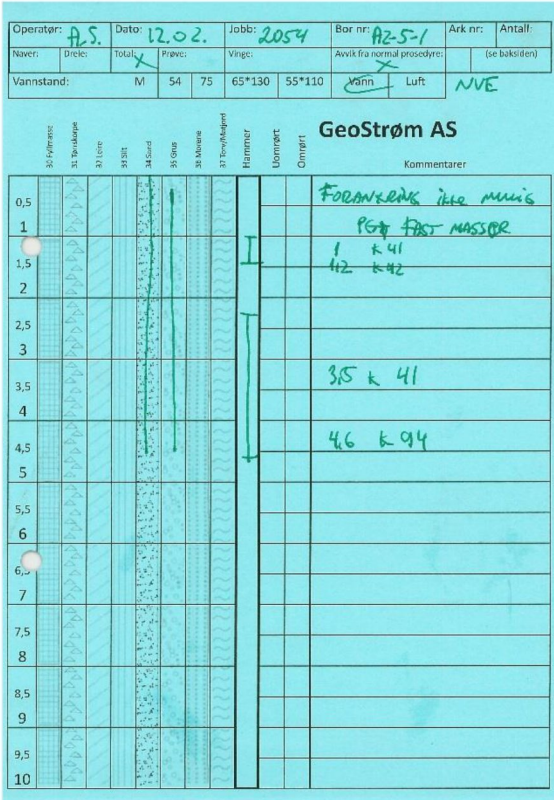 Operatør: A.S. Dato: 12.02. Jobb: 2054 Bor nr: AZ-5-1 Ark nr: Antall:
Naver: Dreie: Total: X Prøve: Vinge: Avvik fra normal prosedyre: X (se baksiden)
Vannstand: M 54 75 65*130 55*110 Vann Luft NVE
GeoStrøm AS
30 Fyllmasse 31 Tørrskorpe 32 Leire 33 Silt 34 Sand 35 Grus 36 Morene 37 Torv/Matjord Hammer Uomrørt Omrørt Kommentarer
0,5 FORANKRING ikke mulig
1 PGA FAST MASSER
1 k 41
1,5 1,2 k 42
2
2,5
3
3,5 3,5 k 41
4
4,5 4,6 k 94
5
5,5
6
6,5
7
7,5
8
8,5
9
9,5
10